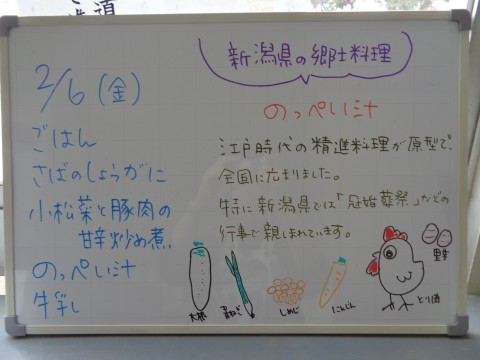 2/6(金)
ごはん
さばのしょうがに
小松菜と豚肉の
甘辛炒め煮
のっぺい汁
牛乳
新潟県の郷土料理
のっぺい汁
江戸時代の精進料理が原型で、
全国に広まりました。
特に新潟県では「冠婚葬祭」などの
行事で親しまれています。
大根
青ねぎ
しめじ
にんじん
とり肉
里芋